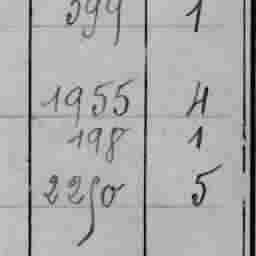 599 1
1955 4
198 1
2250 5